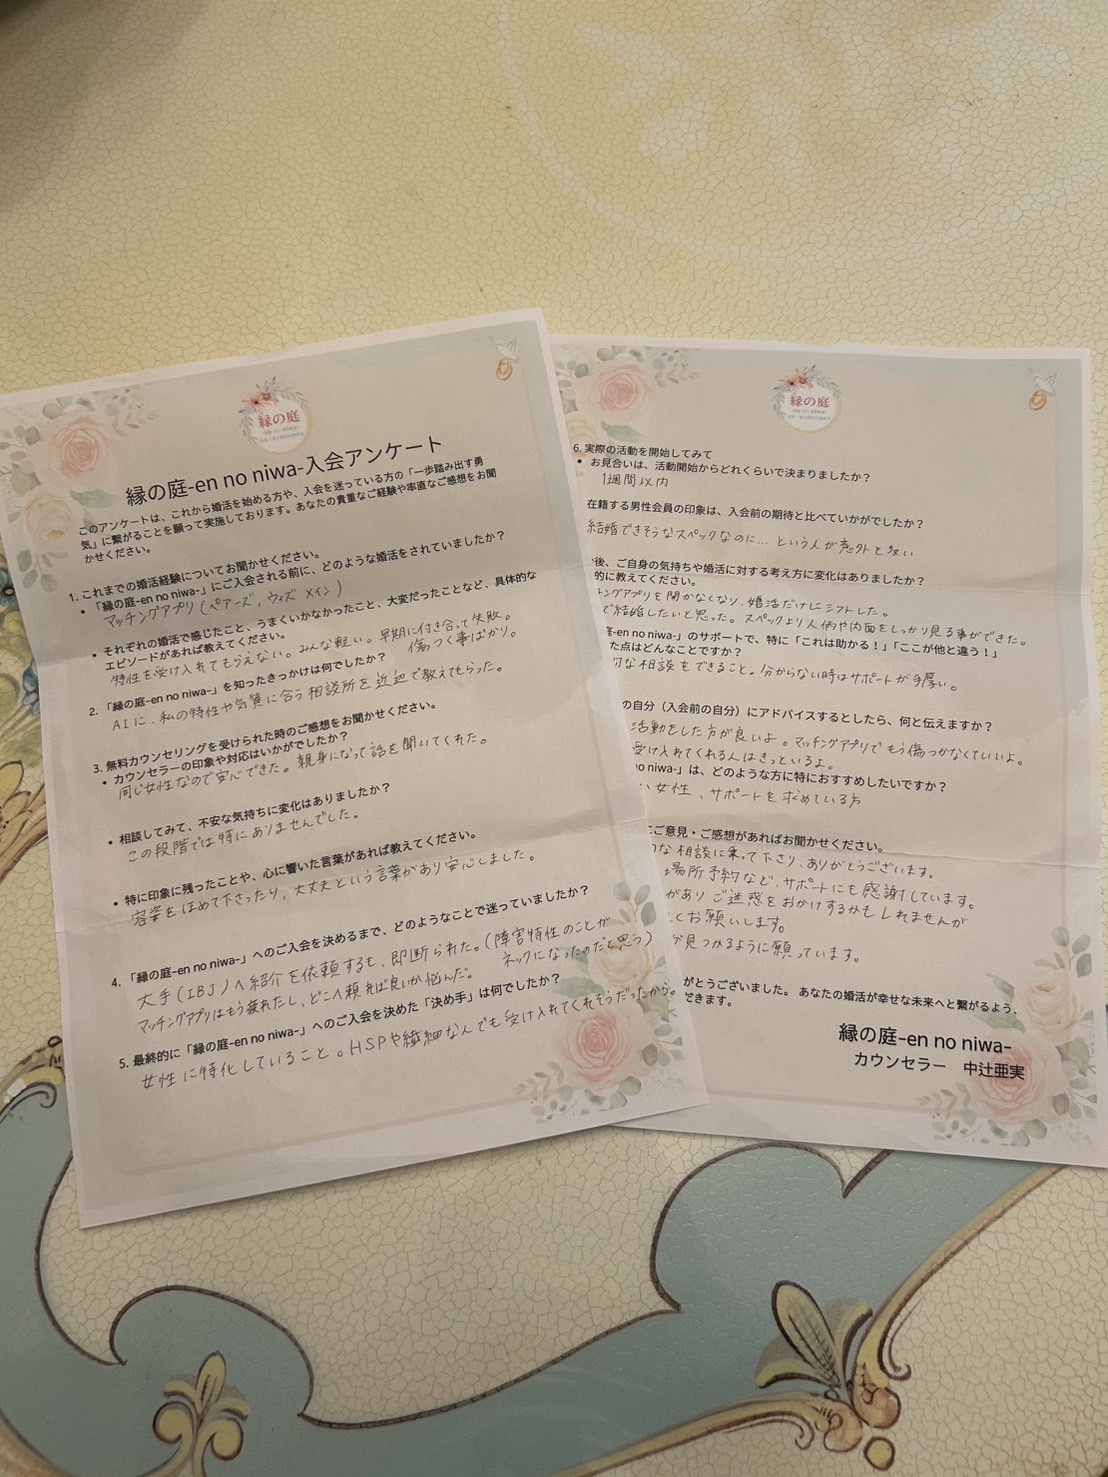 縁の庭
縁の庭-en no niwa-入会アンケート
このアンケートは、これから婚活を始める方や、入会を迷っている方の「一歩踏み出す勇
気」に繋がることを願って実施しております。あなたの貴重なご経験や率直なご感想をお聞
かせください。
1. これまでの婚活経験についてお聞かせください。
• 「縁の庭-en no niwa-」にご入会される前に、どのような婚活をされていましたか?
マッチングアプリ(ペアーズ、ウィズ メイン)
• それぞれの婚活で感じたこと、うまくいかなかったこと、大変だったことなど、具体的な
エピソードがあれば教えてください。
特性を受け入れてもらえない。みんな軽い。早期に付き合って失敗。
傷つく事ばかり。
2. 「縁の庭-en no niwa-」を知ったきっかけは何でしたか?
AIに、私の特性や気質に合う相談所を近辺で教えてもらった。
3. 無料カウンセリングを受けられた時のご感想をお聞かせください。
• カウンセラーの印象や対応はいかがでしたか?
同じ女性なので安心できた。親身になって話を聞いてくれた。
• 相談してみて、不安な気持ちに変化はありましたか?
この段階では特にありませんでした。
• 特に印象に残ったことや、心に響いた言葉があれば教えてください。
容姿をほめて下さったり、大丈夫という言葉があり安心しました。
4. 「縁の庭-en no niwa-」へのご入会を決めるまで、どのようなことで迷っていましたか?
大手(IBJ)へ紹介を依頼するも、即断られた。(障害特性のことが
ネックになったのだと思う)
マッチングアプリはもう疲れたし、どこへ頼れば良いか悩んだ。
5. 最終的に「縁の庭-en no niwa-」へのご入会を決めた「決め手」は何でしたか?
女性に特化していること。HSPや繊細なんでも受け入れてくれそうだったから。
縁の庭
6. 実際の活動を開始してみて
• お見合いは、活動開始からどれくらいで決まりましたか?
1週間以内
在籍する男性会員の印象は、入会前の期待と比べていかがでしたか?
結婚できそうなスペックなのに… という人が意外と多い
後、ご自身の気持ちや婚活に対する考え方に変化はありましたか?
的に教えてください。
チングアプリを開かなくなり、婚活だけにシフトした。
で結婚したいと思った。スペックより人柄や内面をしっかり見る事ができた。
庭-en no niwa-」のサポートで、特に「これは助かる!」「ここが他と違う!」
た点はどんなことですか?
な相談をできること。分からない時はサポートが手厚い。
の自分(入会前の自分)にアドバイスするとしたら、何と伝えますか?
活動をした方が良いよ。マッチングアプリでもう傷つかなくていいよ。
受け入れてくれる人はきっといるよ。
no niwa-」は、どのような方に特におすすめしたいですか?
い女性、サポートを求めている方
にご意見・ご感想があればお聞かせください。
な相談に乗って下さり、ありがとうございます。
場所予約など、サポートにも感謝しています。
がありご迷惑をおかけするかもしれませんが
くお願いします。
が見つかるように願っています。
がとうございました。あなたの婚活が幸せな未来へと繋がるよう、
だきます。
縁の庭-en no niwa-
カウンセラー 中辻亜実